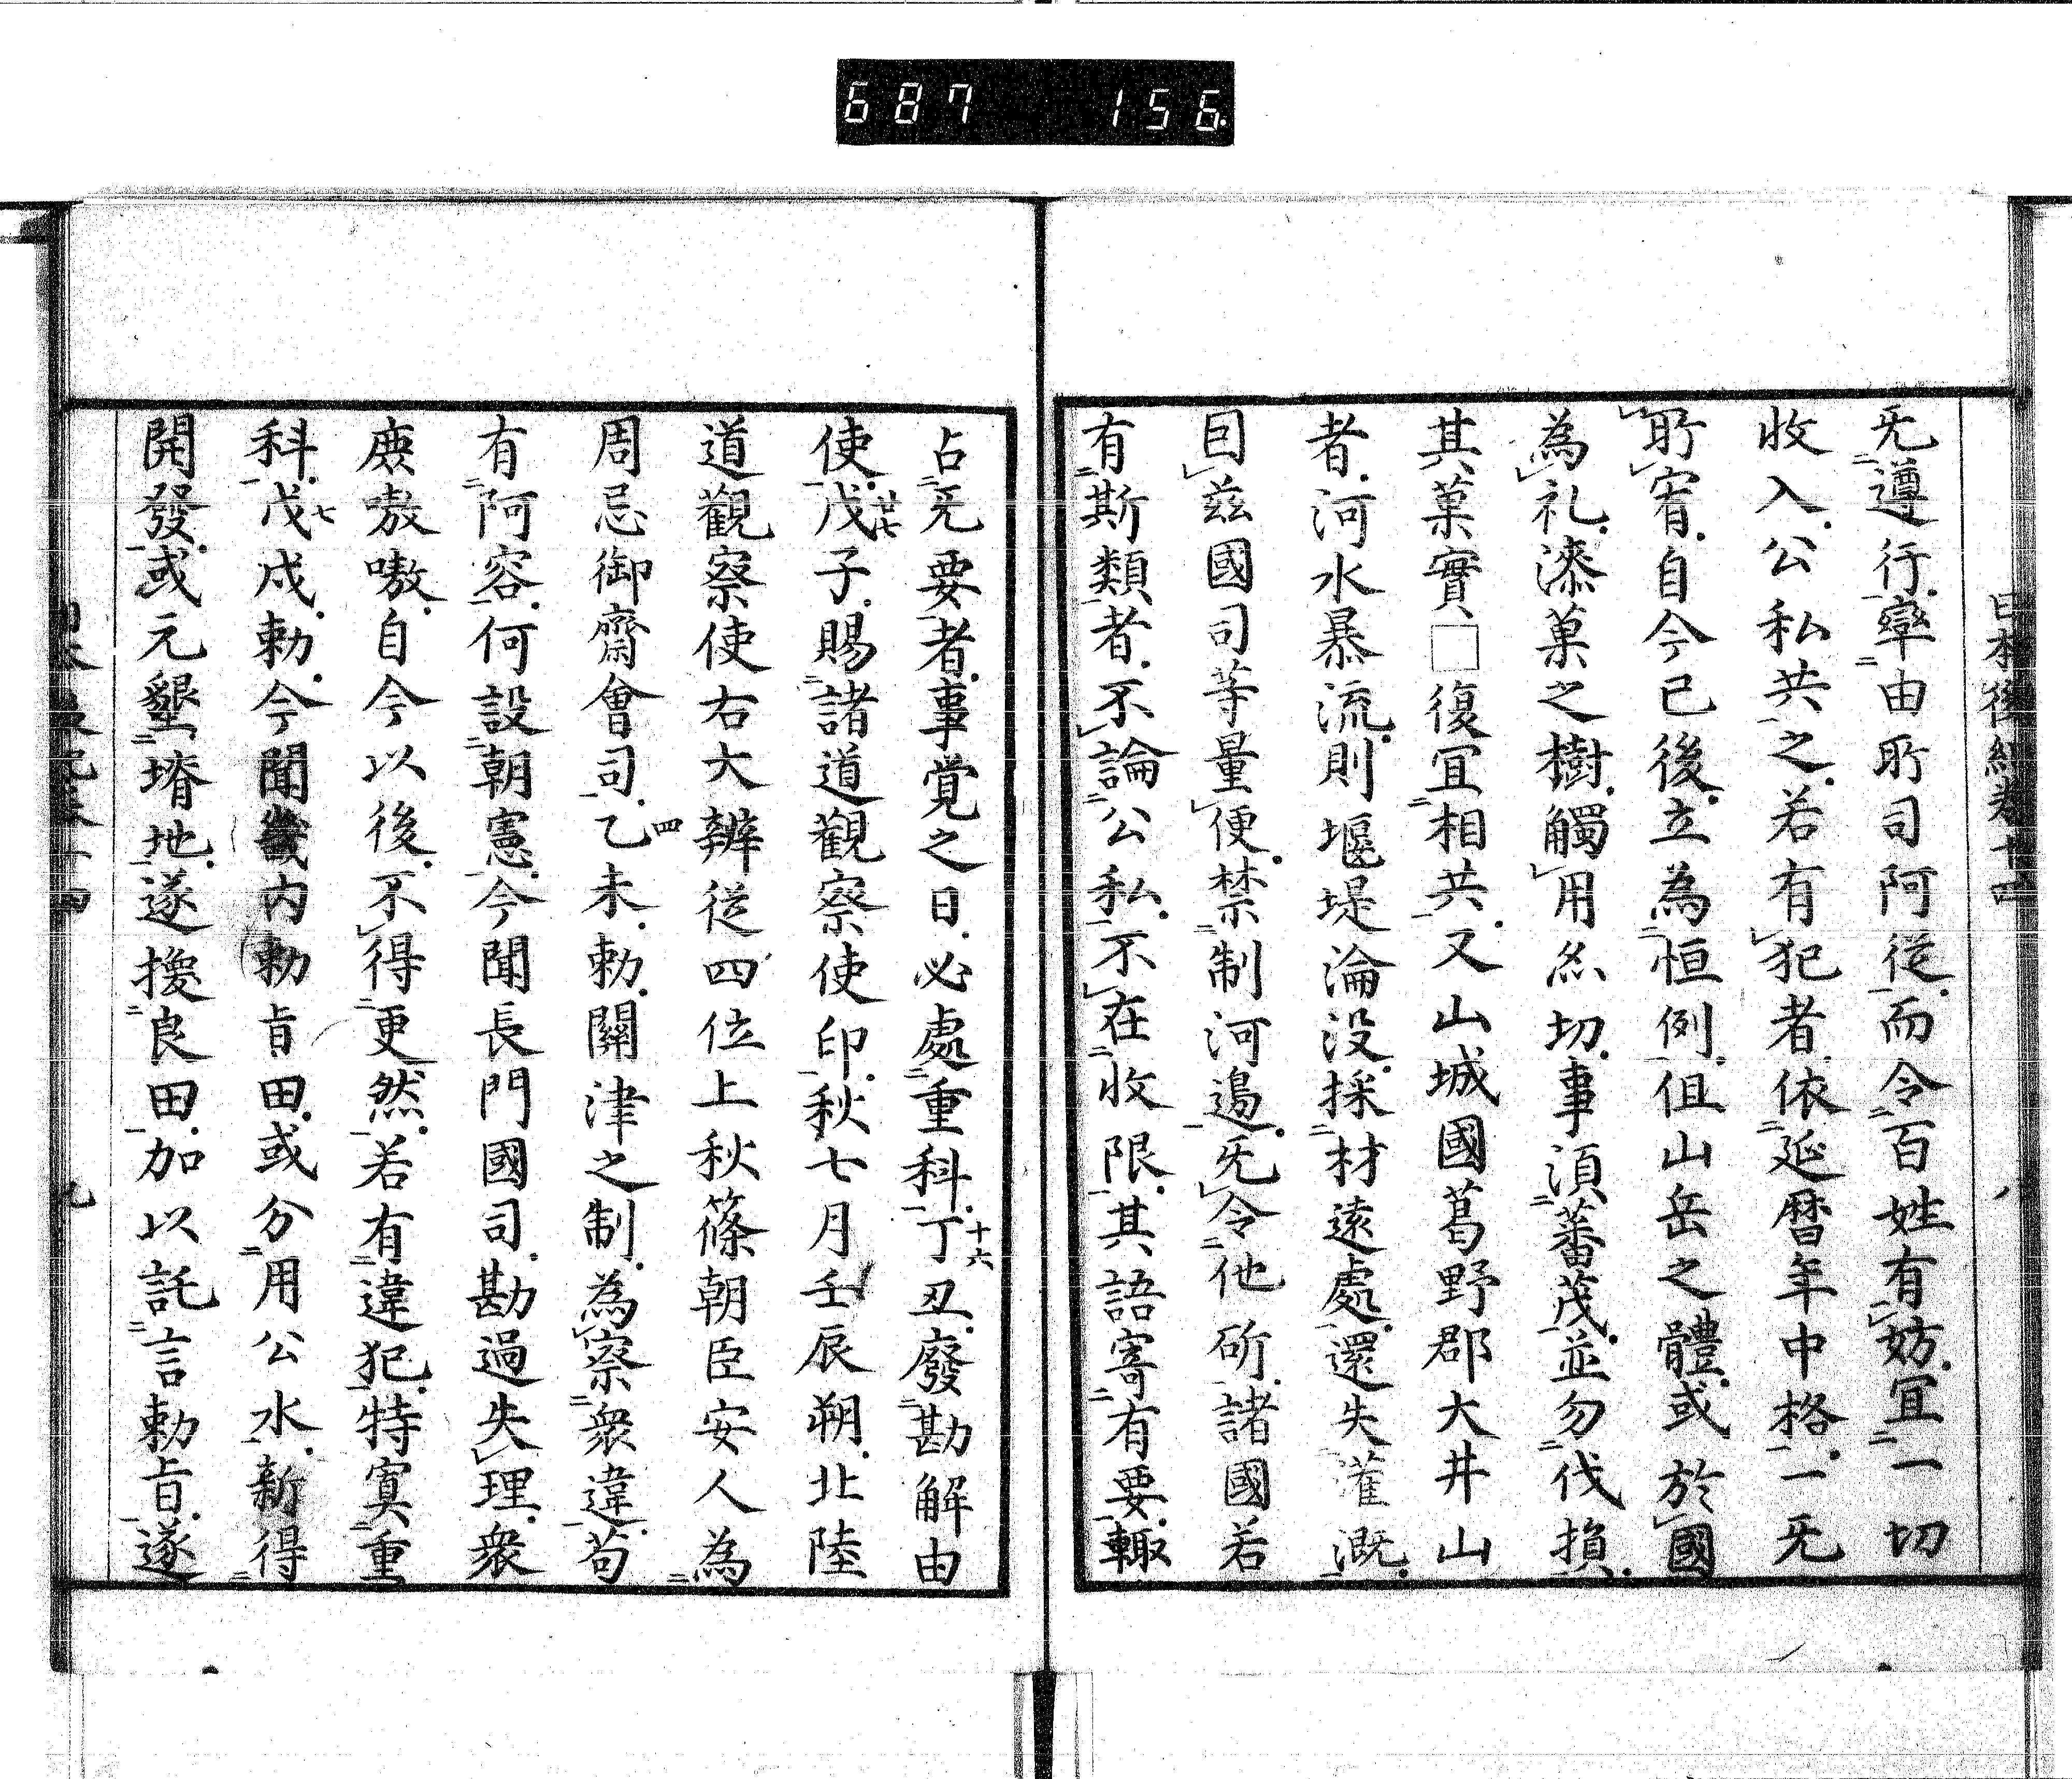 687 156
日本後紀卷十四 八
旡遵行。犖由所司阿從。而令百姓有妨。宜一切
收入。公私共之。若有犯者。依延暦年中格。一旡
所宥。自今已後。立為恒例。但山岳之體。或於國
為礼。漆菓之樹。觸用亦切。事湏蕃茂。並勿伐損。
其菓實、□復宜相共。又山城國葛野郡大井山
者。河水暴流。則堰堤淪没。採材遠處。還失灌漑。
因茲國司等量便。禁制河邉。旡令他斫。諸國若
有斯類者。不論公私。不在收限。其語寄有要。輙
占旡要者。事覚之日。必處重科。丁丑。廢勘解由
十六
使。戊子。賜諸道觀察使印。秋七月壬辰朔。北陸
廿七
道觀察使右大辨從四位上秋篠朝臣安人為
周忌御齋會司。乙未。勅。關津之制。為察衆違。苟
四
有阿容。何設朝憲。今聞長門國司。勘過失理。衆
庶嗷嗷。自今以後。不得更然。若有違犯。特寘重
科。戊戌。勅。今聞畿内勅旨田。或分用公水。新得
七
開發。或元墾塉地。遂換良田。加以託言勅旨。遂
九